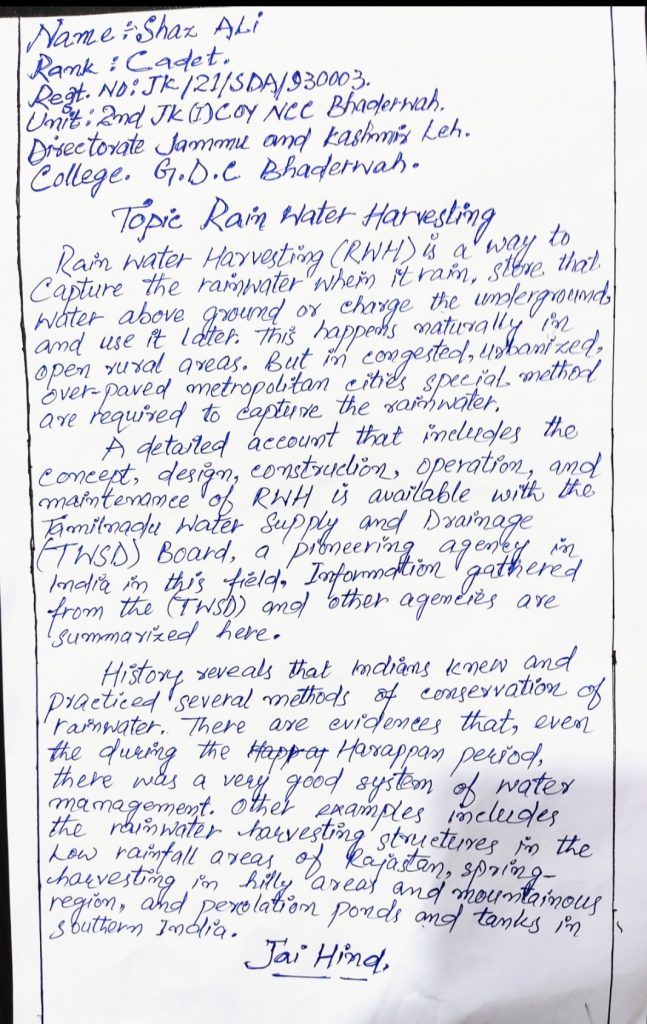 Name :- Shaz ALi
Rank : Cadet.
Regt. NO: JK/21/SDA/930003.
Unit : 2nd JK (I) COY NCC Bhaderwah.
Directorate Jammu and Kashmir Leh.
College. G.D.C Bhaderwah.
Topic Rain Water Harvesting
Rain water Harvesting (RWH) is a way to
Capture the rainwater when it rain, store that
water above ground or charge the underground
and use it later. This happens naturally in
open rural areas. But in congested, urbanized,
over-paved metropolitan cities special method
are required to capture the rainwater.
A detailed account that includes the
concept, design, construction, operation, and
maintenance of RWH is available with the
Tamilnadu Water Supply and Drainage
(TWSD) Board, a pioneering agency in
India in this field. Information gathered
from the (TWSD) and other agencies are
summarized here.
History reveals that Indians knew and
practiced several methods of conservation of
rainwater. There are evidences that, even
the during the Harappan period,
there was a very good system of water
management. Other examples includes
the rainwater harvesting structures in the
Low rainfall areas of Rajastan, spring-
harvesting in hilly areas and mountainous
region, and perolation ponds and tanks in
Southern India.
Jai Hind.